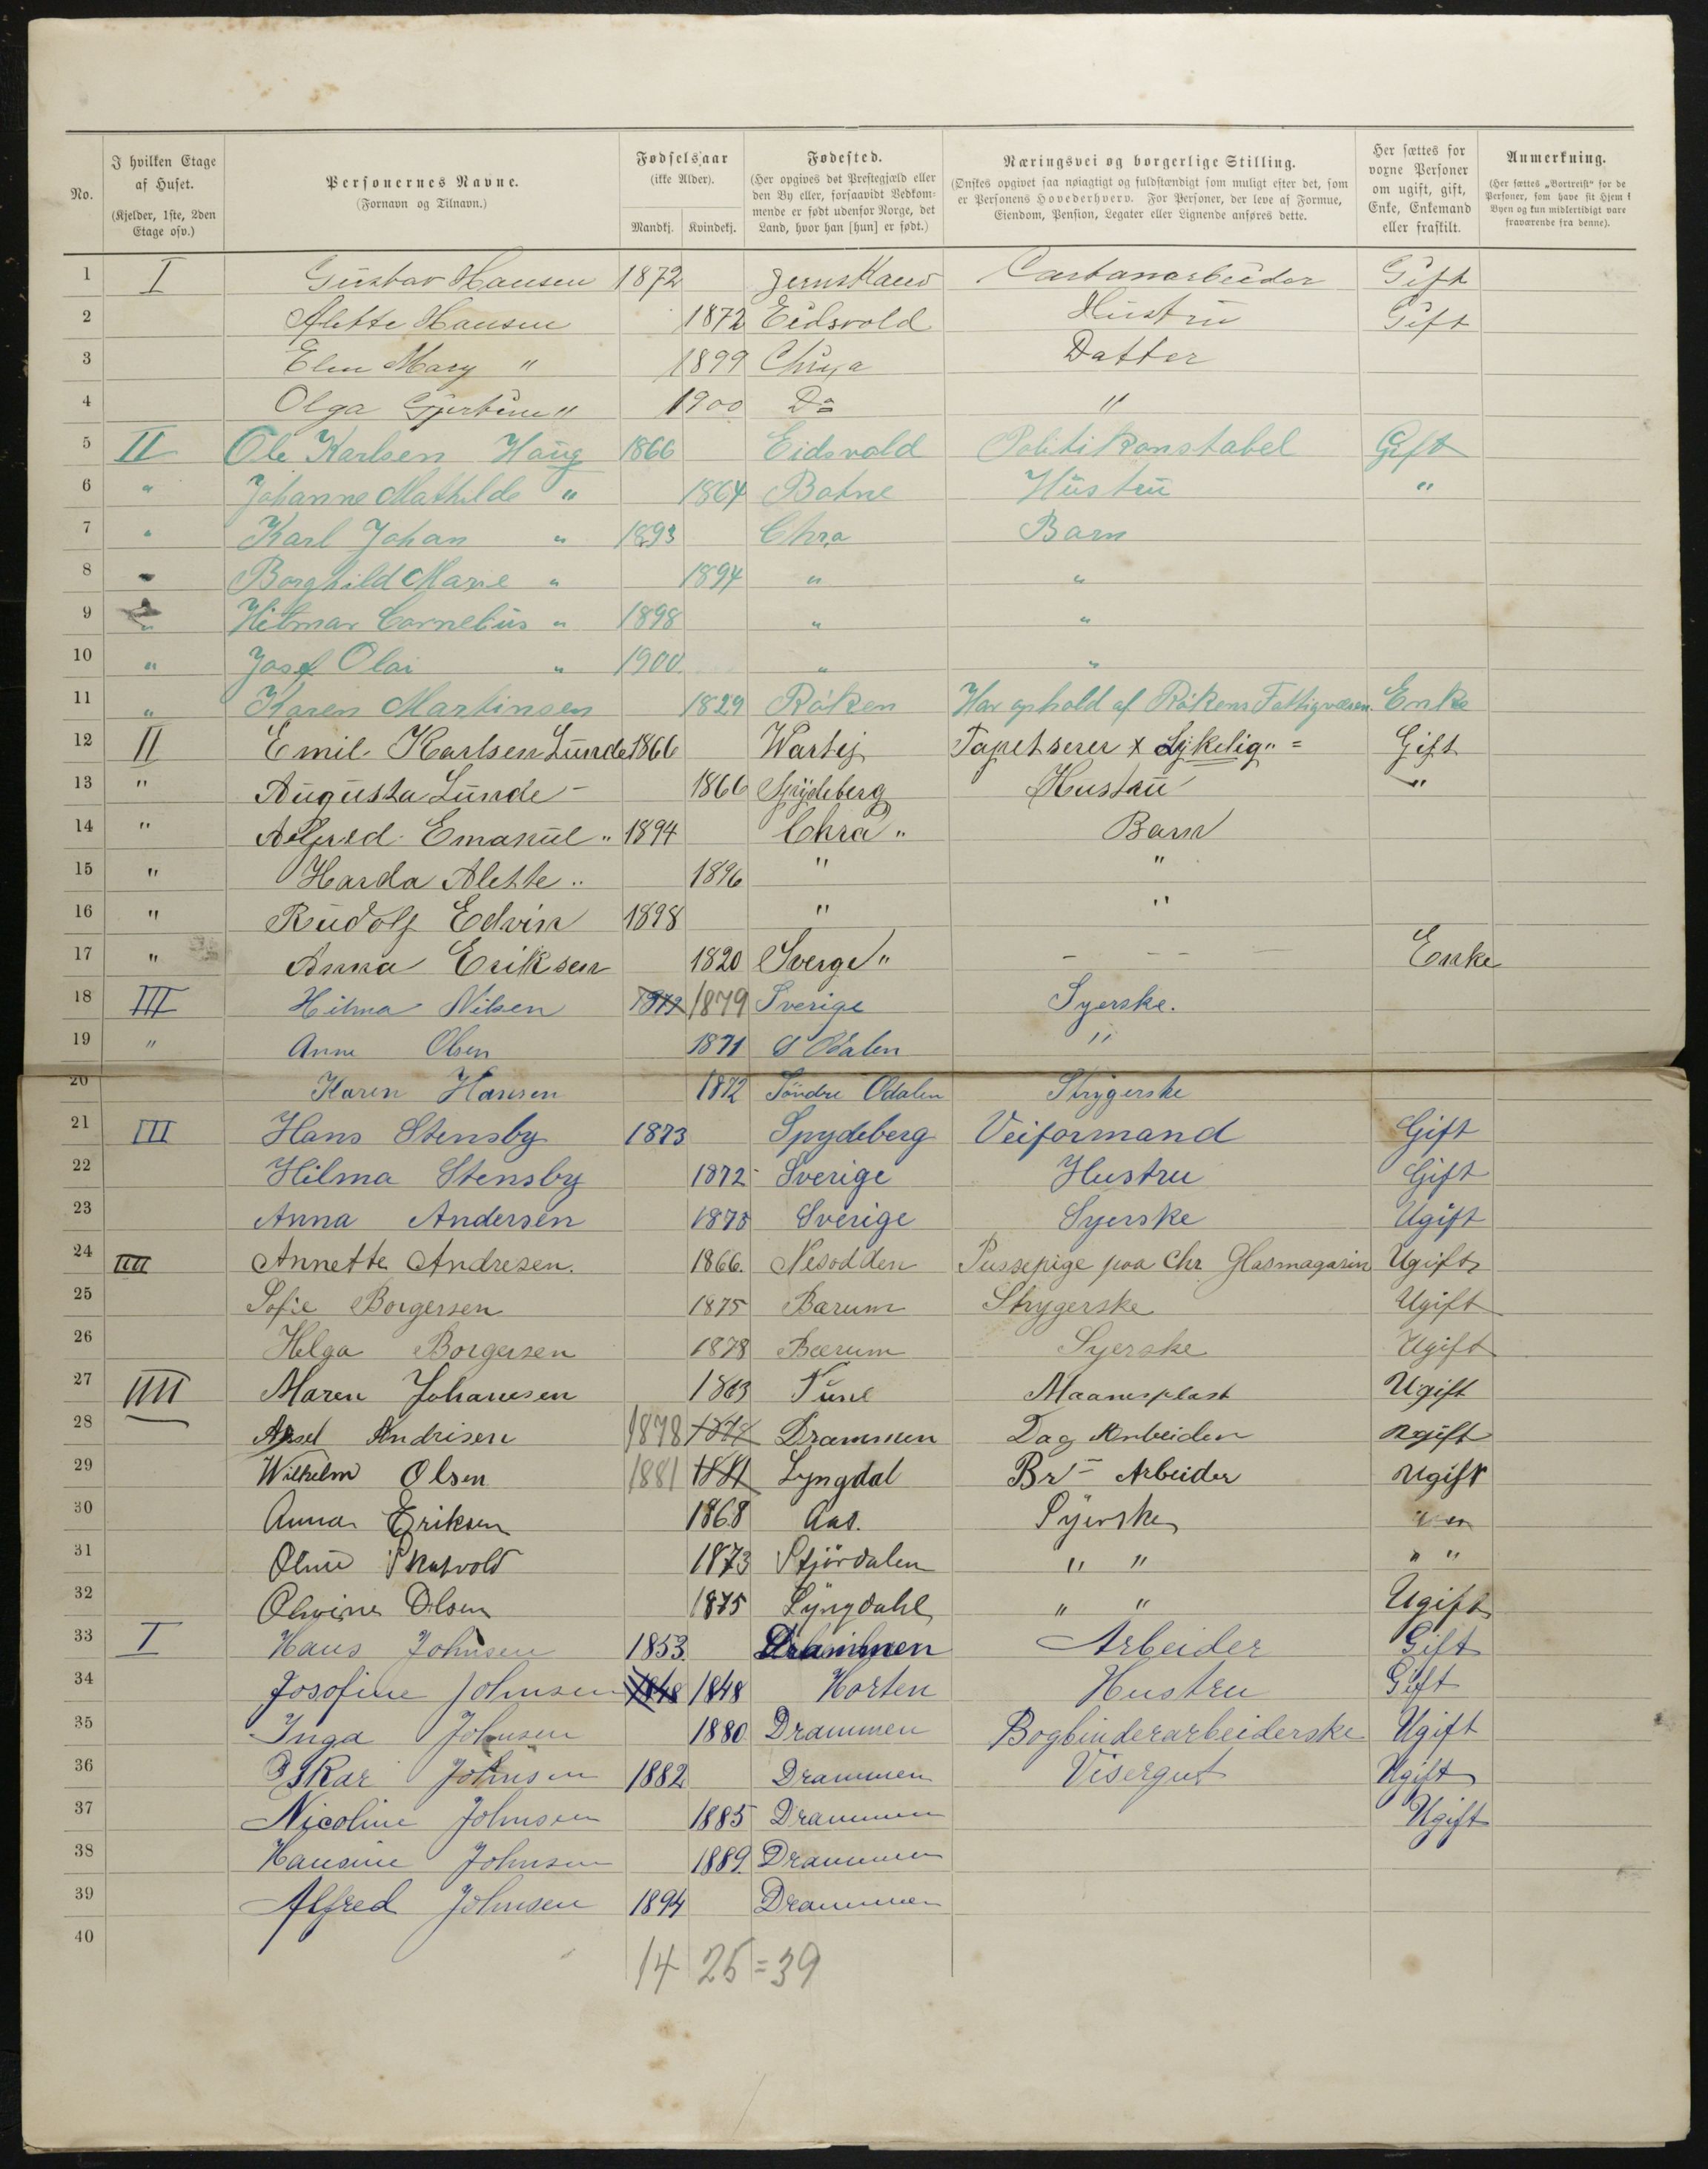 No.
I hvilken Etage af Huset.
(Kjelder, 1ste, 2den Etage osv.)
Personernes Navne.
(Fornavn og Tilnavn.)
Fødselsaar
(ikke Alder).
Mandkj. Kvindekj.
Fødested.
(Her opgives det Præstegjæld eller den By eller, forsaavidt Vedkommende er født udenfor Norge, det Land, hvor han [hun] er født.)
Næringsvei og borgerlige Stilling.
(Ønskes opgivet saa nøiagtigt og fuldstændigt som muligt efter det, som er Personens Hovederhverv. For Personer, der leve af Formue, Eiendom, Pension, Legater eller Lignende anføres dette.
Her sættes for voxne Personer om ugift, gift, Enke, Enkemand eller fraskilt.
Anmerkning.
(Her sættes „Bortreist" for de Personer, som have sit Hjem i Byen og kun midlertidigt vare fraværende fra denne).
1 I Gustav Hansen 1872 Cartonarbeider Gift
2 Alette Hansen 1872 Eidsvold Hustru Gift
3 Elen Mary " 1899 Datter
4 Olga " 1900 Do "
5 II Ole Karlsen Haug 1866 Eidsvold Politikonstabel Gift
6 " Johanne Mathilde " 1864 Botne Hustru "
7 " Karl Johan " 1893 Chra Barn
8 " Borghild Marie " 1894 " "
9 " Hilmar Cornelius " 1898 " "
10 " Josef Olai " 1900 " "
11 " Karen Martinsen 1829 Røken Har ophold af Røkens Fattigvæsen. Enke
12 II Emil Karlsen Lunde 1866 Tapetserer x Gift
13 " Augusta Lunde 1866 Spydeberg Hustru "
14 " Alfred Emanuel " 1894 Chra " Barn
15 " Harda Alette " 1896 " "
16 " Rudolf Edvin 1898 " "
17 " Anna Eriksen 1820 Sverge " - - - Enke
18 III Hilma Nilsen 1879 1879 Sverige Syerske.
19 " Anne Olsen 1871 S Odalen "
20 Karen Hansen 1872 Søndre Odalen Strygerske
21 III Hans Stensby 1873 Spydeberg Veiformand Gift
22 Hilma Stensby 1872 Sverige Hustru Gift
23 Anna Andersen 1878 Sverige Syerske Ugift
24 IIII Annette Andresen. 1866. Nesodden Pussepige paa Chr Glasmagasin Ugift
25 Sofie Borgersen 1875 Barum Strygerske Ugift
26 Helga Borgersen 1878 Bærum Syerske Ugift
27 IIII Maren Johanesen 1863 Tune Ugift
28 Aksel Andrisen 1878 1878 Drammen Dag Arbeiden ugift
29 Wilhelm Olsen 1881 1881 Lyngdal Br - Arbeider Ugift
30 Anna Eriksen 1868 Aas. Syerske "
31 Oline Skatvold 1873 Stjørdalen " " " "
32 Olvine Olsen 1875 Lyngdahl " " Ugift
33 I Hans Johnsen 1853. Drammen Arbeider Gift
34 Josofine Johnsen 1848 1848 Horten Hustru Gift
35 Inga Johnsen 1880 Drammen Bogbinderarbeiderske Ugift
36 Oskar Johnsen 1882 Drammen Visergut Ugift
37 Nicoline Johnsen 1885 Drammen Ugift
38 Hansine Johnsen 1889. Drammen
39 Alfred Johnsen 1894 Drammen
40
14 25 = 39